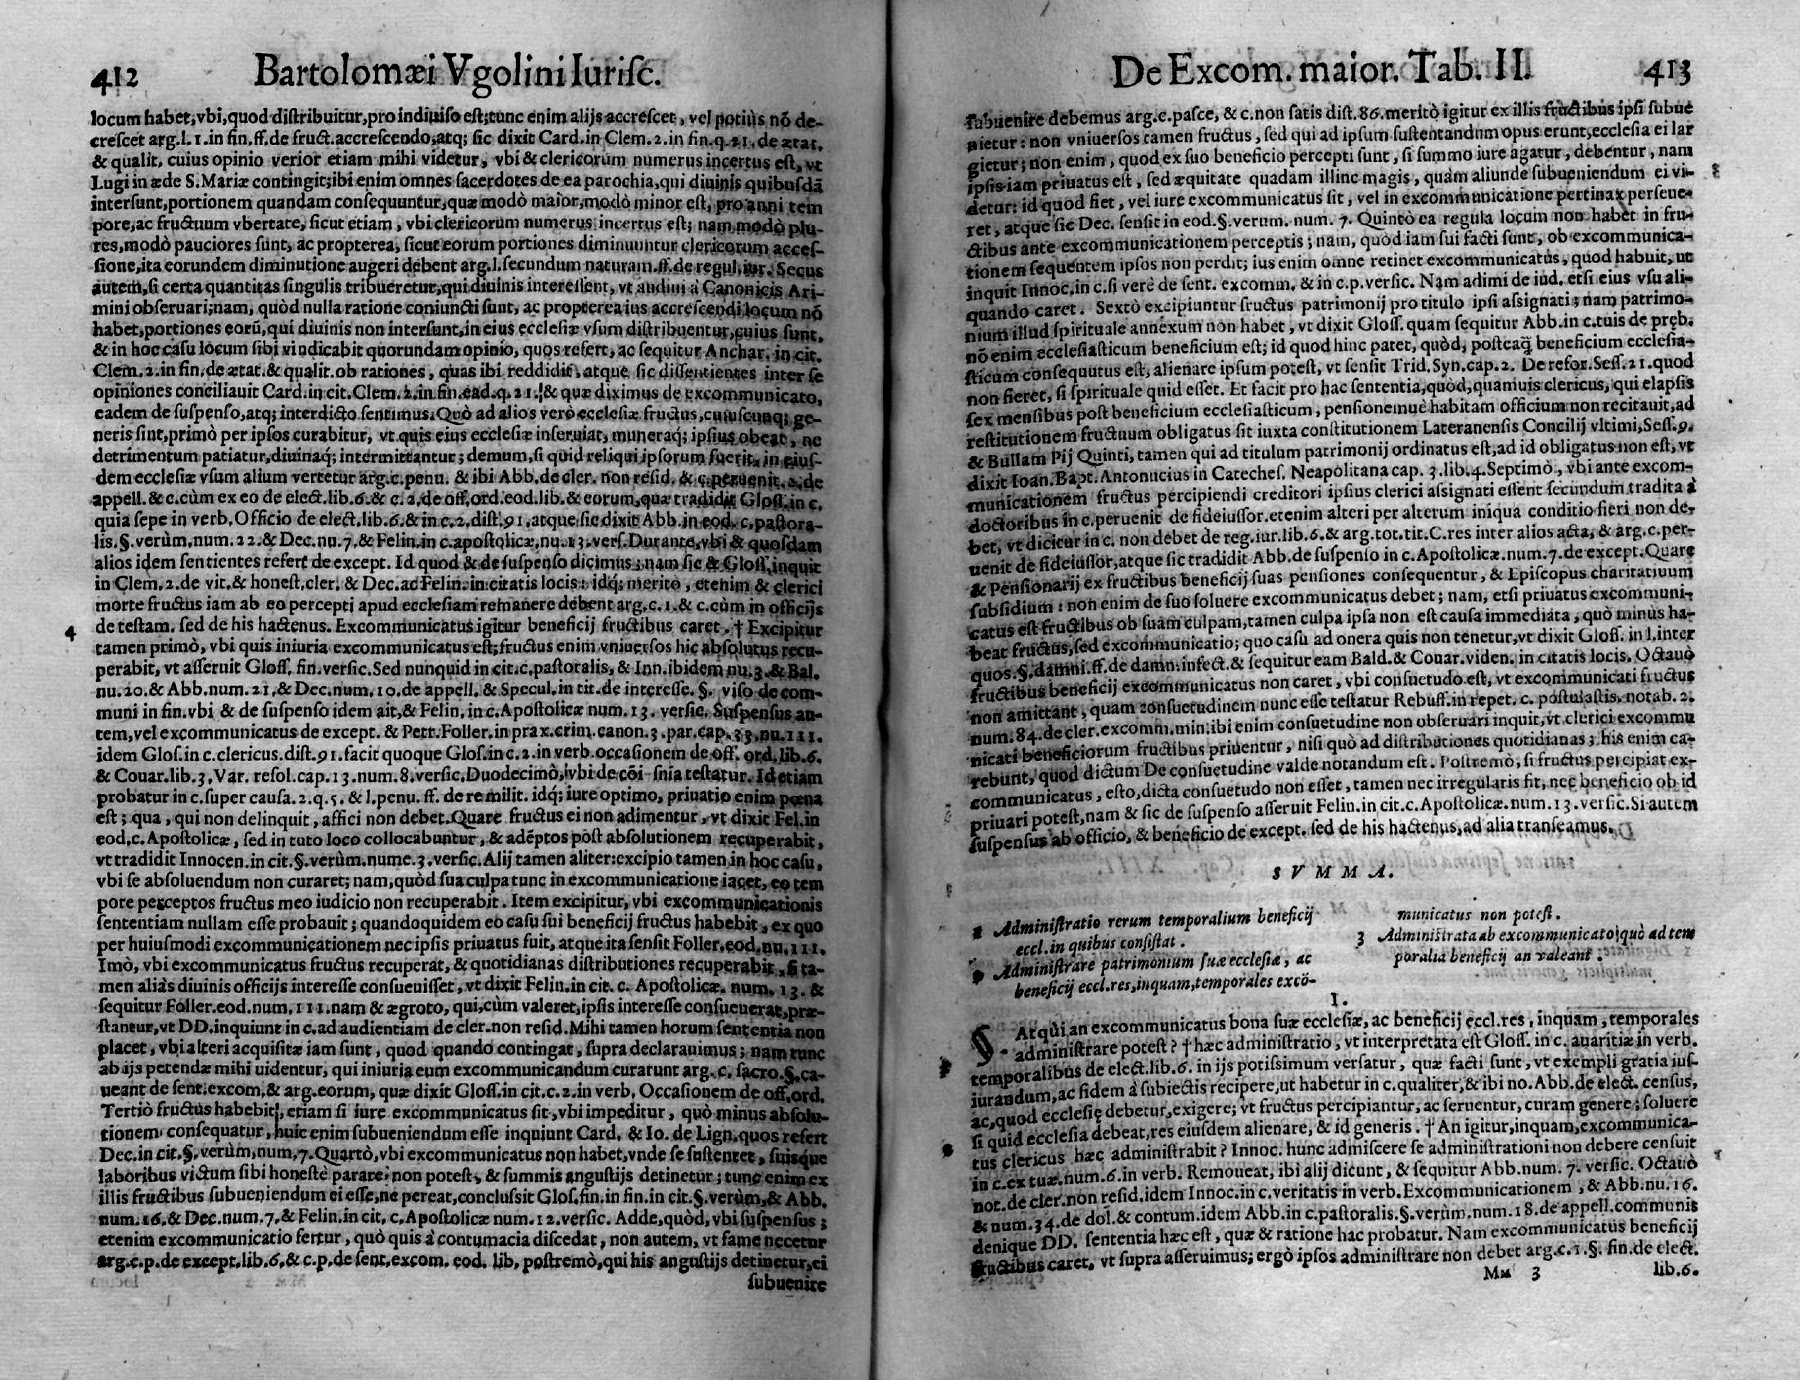 412 Bartolomæi Vgolini Iurisc.
locum habet, vbi, quod distribuitur, pro indiuiso est; tunc enim alijs accrescet, vel potiùs nõ de-
crescet arg.l.1.in fin.ff.de fruct.accrescendo,atq; sic dixit Card.in Clem.2.in fin.q.21.de ætat.
& qualit. cuius opinio verior etiam mihi videtur, vbi & clericorum numerus incertus est, vt
Lugi in æde S.Mariæ contingit;ibi enim omnes sacerdotes de ea parochia,qui diuinis quibusdã
intersunt,portionem quandam consequuntur,quæ modò maior,modò minor est, pro anni tem
pore,ac fructuum vbertate, sicut etiam, vbi clericorum numerus incertus est; nam modò plu-
res,modò pauciores sunt, ac propterea, sicut eorum portiones diminuuntur clericorum acces-
sione,ita eorundem diminutione augeri debent arg.l.secundum naturam.ff.de regul.iur. Secus
autem,si certa quantitas singulis tribueretur,qui diuinis interessent, vt audini à Canonicis Ari-
mini obseruari;nam, quòd nulla ratione coniuncti sunt, ac propterea ius accrescendi locum nõ
habet,portiones eorũ,qui diuinis non intersunt,in eius ecclesiæ vsum distribuentur,cuius sunt,
& in hoc casu locum sibi vindicabit quorundam opinio, quos refert, ac sequitur Anchar. in cit.
Clem.2.in fin.de ætat.& qualit.ob rationes, quas ibi reddidit, atque sic dissentientes inter se
opiniones conciliauit Card.in cit.Clem.2.in fin.ead.q.21.& quæ diximus de excommunicato,
eadem de suspenso,atq; interdicto sentimus. Quò ad alios verò ecclesiæ fructus,cuiuscunq; ge-
neris sint,primò per ipsos curabitur, vt quis eius ecclesiæ inseruiat, muneraq; ipsius obeat, ne
detrimentum patiatur,diuinaq; intermittantur; demum,si quid reliqui ipsorum fuerit, in eius-
dem ecclesiæ vsum alium vertetur arg.c.penu. & ibi Abb.de cler. non resid. & c.peruenit.2.de
appell.& c.cùm ex eo de elect.lib.6.& c.2.de off.ord.eod.lib.& eorum,quæ tradidit Gloss.in c.
quia sepe in verb.Officio de elect.lib.6.& in c.2.dist.91.atque sic dixit Abb.in eod.c.pastora-
lis.§.verùm,num.22.& Dec.nu.7.& Felin.in c.apostolicæ,nu.13.vers.Durante,vbi & quosdam
alios idem sentientes refert de except. Id quod & de suspenso dicimus; nam sic & Gloss.inquit
in Clem.2.de vit.& honest.cler. & Dec.ac Felin.in citatis locis: idq; meritò, etenim & clerici
morte fructus iam ab eo percepti apud ecclesiam remanere debent arg.c.1.& c.cùm in officijs
4 de testam. sed de his hactenus. Excommunicatus igitur beneficij fructibus caret. † Excipitur
tamen primò, vbi quis iniuria excommunicatus est;fructus enim vniuersos hic absolutus recu-
perabit, vt asseruit Gloss. fin.versic.Sed nunquid in cit.c.pastoralis,& Inn.ibidem nu.3.& Bal.
nu.20.& Abb.num.21,& Dec.num.10.de appell.& Specul.in tit.de interesse. §. viso de com-
muni in fin.vbi & de suspenso idem ait,& Felin.in c.Apostolicæ num.13. versic. Suspensus au-
tem,vel excommunicatus de except. & Petr.Foller.in prax.crim.canon.3.par.cap.33.nu.111.
idem Glos.in c.clericus.dist.91.facit quoque Glos.in c.2.in verb.occasionem de off. ord.lib.6.
& Couar.lib.3.Var. resol.cap.13.num.8.versic.Duodecimò, vbi de testatur. Id etiam
probatur in c.super causa.2.q.5.& l.penu. ff. de re milit. idq; iure optimo, priuatio enim pœna
est; qua, qui non delinquit, affici non debet. Quare fructus ei non adimentur, vt dixit Fel.in
eod.c.Apostolicæ, sed in tuto loco collocabuntur, & adeptos pòst absolutionem recuperabit,
vt tradidit Innocen.in cit.§.verùm.nume.3.versic.Alij tamen aliter:excipio tamen in hoc casu,
vbi se absoluendum non curaret; nam,quòd sua culpa tunc in excommunicatione iacet, eo tem
pore perceptos fructus meo iudicio non recuperabit. Item excipitur, vbi excommunicationis
sententiam nullam esse probauit; quandoquidem eo casu sui beneficij fructus habebit, ex quo
per huiusmodi excommunicationem nec ipsis priuatus fuit, atque ita sensit Foller.eod.nu.111.
Imò, vbi excommunicatus fructus recuperat, & quotidianas distributiones recuperabit, si ta-
men aliàs diuinis officijs interesse consueuisset, vt dixit Felin.in cit. c. Apostolicæ. num. 13. &
sequitur Foller.eod.num.111.nam & ægroto, qui,cùm valeret,ipsis interesse consueuerat,præ-
stantur,vt DD.inquiunt in c.ad audientiam de cler.non resid.Mihi tamen horum sententia non
placet, vbi alteri acquisitæ iam sunt, quod quando contingat, supra declarauimus; nam tunc
ab ijs petendæ mihi uidentur, qui iniuria eum excommunicandum curarunt arg. c. sacro.§.ca-
ueant de sent.excom.& arg.eorum, quæ dixit Gloss.in cit.c.2.in verb. Occasionem de off.ord.
Tertiò fructus habebit, etiam si iure excommunicatus sit, vbi impeditur, quò minus absolu-
tionem consequatur, huic enim subueniendum esse inquiunt Card. & Io. de Lign.quos refert
Dec.in cit.§.verùm,num.7.Quartò,vbi excommunicatus non habet,vnde se sustentet, suisque
laboribus victum sibi honestè parare non potest, & summis angustijs detinetur; tunc enim ex
illis fructibus subueniendum ei esse,ne pereat,conclussit Glos.fin.in fin.in cit.§.verùm,& Abb.
num.16.& Dec.num.7.& Felin.in cit. c.Apostolicæ num.12.versic. Adde,quòd, vbi suspensus;
etenim excommunicatio fertur, quò quis à contumacia discedat, non autem, vt fame necetur
arg.c.p.de except.lib.6.& c.p.de sent.excom. eod. lib. postremò,qui his angustijs detinetur,ei
subuenire
De Excom. maior. Tab. II. 413
subuenire debemus arg.c.pasce, & c.non satis dist.86.meritò igitur ex illis fructibus ipsi subue
nietur: non vniuersos tamen fructus, sed qui ad ipsum sustentandum opus erunt,ecclesia ei lar
gietur; non enim, quod ex suo beneficio percepti sunt, si summo iure agatur, debentur, nam
ipsis iam priuatus est, sed æquitate quadam illinc magis, quàm aliunde subueniendum ei vi-
detur: id quod fiet, vel iure excommunicatus sit, vel in excommunicatione pertinax perseue-
ret, atque sic Dec. sensit in eod.§.verum. num. 7. Quintò ea regula locum non habet in fru-
ctibus ante excommunicationem perceptis; nam, quòd iam sui facti sunt, ob excommunica-
tionem sequentem ipsos non perdit; ius enim omne retinet excommunicatus, quod habuit, ut
inquit Innoc.in c.si verè de sent. excomm. & in c.p.versic. Nam adimi de iud. etsi eius vsu ali-
quando caret. Sextò excipiuntur fructus patrimonij pro titulo ipsi assignati; nam patrimo-
nium illud spirituale annexum non habet, vt dixit Gloss. quam sequitur Abb.in c.tuis de pręb.
nõ enim ecclesiasticum beneficium est; id quod hinc patet, quòd, posteaq̃ beneficium ecclesia-
sticum consequutus est, alienare ipsum potest, vt sensit Trid.Syn.cap.2. De refor.Sess.21.quod
non fieret, si spirituale quid esset. Et facit pro hac sententia,quòd,quamuis clericus, qui elapsis
sex mensibus post beneficium ecclesiasticum, pensionemuè habitam officium non recitauit,ad
restitutionem fructuum obligatus sit iuxta constitutionem Lateranensis Concilij vltimi,Sess.9.
& Bullam Pij Quinti, tamen qui ad titulum patrimonij ordinatus est,ad id obligatus non est, vt
dixit Ioan.Bapt.Antonucius in Cateches. Neapolitana cap. 3.lib.4.Septimò, vbi ante excom-
municationem fructus percipiendi creditori ipsius clerici assignati essent secundum tradita à
doctoribus in c.peruenit de fideiussor.etenim alteri per alterum iniqua conditio fieri non de-
bet, vt dicitur in c. non debet de reg.iur.lib.6.& arg.tot.tit.C.res inter alios acta, & arg.c.per-
uenit de fideiussor,atque sic tradidit Abb.de suspenso in c.Apostolicæ.num.7.de except.Quare
& Pensionarij ex fructibus beneficij suas pensiones consequentur, & Episcopus charitatiuum
subsidium: non enim de suo soluere excommunicatus debet; nam, etsi priuatus excommuni-
catus est fructibus ob suam culpam,tamen culpa ipsa non est causa immediata, quò minus ha-
beat fructus,sed excommunicatio; quo casu ad onera quis non tenetur,vt dixit Gloss. in l.inter
quos.§.damni.ff.de damn.infect.& sequitur eam Bald.& Couar.viden.in citatis locis. Octauò
fructibus beneficij excommunicatus non caret, vbi consuetudo est, vt excommunicati fructus
non amittant, quam consuetudinem nunc esse testatur Rebuff.in repet. c. postulastis. notab. 2.
num.84.de cler.excomm.min:ibi enim consuetudine non obseruari inquit,vt clerici excommu
nicati beneficiorum fructibus priuentur, nisi quò ad distributiones quotidianas; his enim ca-
rebunt, quod dictum De consuetudine valde notandum est. Postremò, si fructus percipiat ex-
communicatus, esto,dicta consuetudo non esset, tamen nec irregularis fit, nec beneficio ob id
priuari potest,nam & sic de suspenso asseruit Felin.in cit.c.Apostolicæ.num.13.versic.Si autem
suspensus ab officio, & beneficio de except. sed de his hactenus,ad alia transeamus.
SVMMA.
1 Administratio rerum temporalium beneficij
eccl.in quibus consistat.
Administrare patrimonium suæ ecclesiæ, ac
beneficij eccl.res,inquam,temporales excõ-
municatus non potest.
3 Administrata ab excommunicato quò ad tem
poralia beneficij an valeant.
I.
§. Atqui an excommunicatus bona suæ ecclesiæ, ac beneficij eccl.res, inquam, temporales
administrare potest? † hæc administratio, vt interpretata est Gloss. in c. auaritiæ in verb.
temporalibus de elect.lib.6. in ijs potissimum versatur, quæ facti sunt, vt exempli gratia ius-
iurandum, ac fidem à subiectis recipere,ut habetur in c.qualiter,& ibi no. Abb.de elect. census,
ac,quod ecclesię debetur,exigere; vt fructus percipiantur, ac seruentur, curam genere; soluere
si quid ecclesia debeat,res eiusdem alienare, & id generis. † An igitur,inquam,excommunica-
tus clericus hæc administrabit? Innoc. hunc admiscere se administrationi non debere censuit
in c.ex tuæ.num.6.in verb. Remoueat, ibi alij dicunt, & sequitur Abb.num. 7. versic. Octauò
not.de cler.non resid.idem Innoc.in c.veritatis in verb.Excommunicationem, & Abb.nu.16.
& num.34.de dol.& contum.idem Abb.in c.pastoralis.§.verùm.num.18.de appell.communis
denique DD. sententia hæc est, quæ & ratione hac probatur. Nam excommunicatus beneficij
fructibus caret, vt supra asseruimus; ergò ipsos administrare non debet arg.c.1.§. fin.de elect.
Mm 3 lib.6.